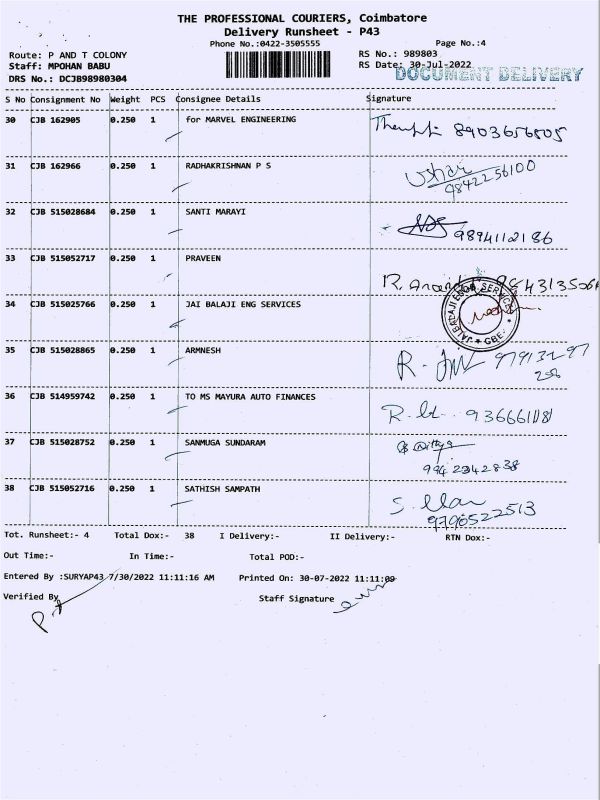 THE PROFESSIONAL COURIERS, Coimbatore
Delivery Runsheet - P43
Phone No.:0422-3505555
Page No.:4
Route: P AND T COLONY
RS No.: 989803
Staff: MPOHAN BABU
RS Date: 30-Jul-2022
DOCUMENT DELIVERY
DRS No.: DCJB98980304
S No Consignment No Weight PCS Consignee Details Signature
30 CJB 162905 0.250 1 for MARVEL ENGINEERING 8903656805
31 CJB 162966 0.250 1 RADHAKRISHNAN P S Usha
9842256100
32 CJB 515028684 0.250 1 SANTI MARAYI 9894112186
33 CJB 515052717 0.250 1 PRAVEEN R. Anand
34 CJB 515025766 0.250 1 JAI BALAJI ENG SERVICES
JAI BALAJI ENGG SERVICES ★ CBE ★
35 CJB 515028865 0.250 1 ARMNESH R.
36 CJB 514959742 0.250 1 TO MS MAYURA AUTO FINANCES R.
37 CJB 515028752 0.250 1 SANMUGA SUNDARAM
9942342838
38 CJB 515052716 0.250 1 SATHISH SAMPATH S.
9790522513
Tot. Runsheet:- 4 Total Dox:- 38 I Delivery:- II Delivery:- RTN Dox:-
Out Time:- In Time:- Total POD:-
Entered By :SURYAP43 7/30/2022 11:11:16 AM Printed On: 30-07-2022 11:11:09
Verified By Staff Signature